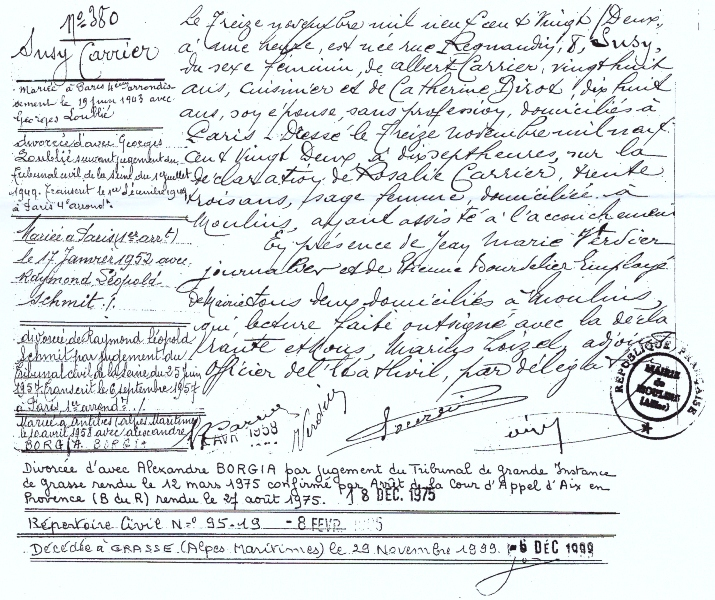 N° 380
Susy Carrier
Mariée à Paris 4ème arrondis
sement le 19 juin 1943 avec
Georges Loublié
divorcée d'avec Georges
Loublié suivant jugement du
Tribunal civil de la Seine du 1er juillet
1949. Transcrit le 1er décembre 1949
à Paris 4e arrondt
Mariée à Paris (1er arrt)
le 17 Janvier 1952 avec
Raymond Léopold
Schmit ./.
divorcée de Raymond Léopold
Schmit par jugement du
Tribunal civil de la Seine du 25 juin
1957 transcrit le 6 septembre 1957
à Paris 1er arrondt ./.
Mariée à Antibes (Alpes Maritimes)
le 10 avril 1958 avec Alexandre
BORGIA
AVR 1958
Le Treize novembre mil neuf cent Vingt Deux,
à une heure, est née rue Regnaudin, 8, Susy,
du sexe féminin, de Albert Carrier, vingt huit
ans, cuisinier et de Catherine Birot, dix huit
ans, son épouse, sans profession, domiciliés à
Paris - Dressé le Treize novembre mil neuf
cent Vingt Deux, à dix sept heures, sur la
déclaration de Rosalie Carrier, trente
trois ans, sage femme, domiciliée à
Moulins, ayant assisté à l'accouchement
En présence de Jean Marie Verdier
journalier et de Etienne Bourdelier Employé
de Mairie tous deux domiciliés à Moulins,
qui, lecture faite ont signé avec la décla
rante et Nous, Marius adjoint
officier de l'Etat Civil, par délégat
RÉPUBLIQUE FRANÇAISE
MAIRIE
de
MOULINS
(Allier)
Carrier
Verdier
Divorcée d'avec Alexandre BORGIA par jugement du Tribunal de grande Instance
de grasse rendu le 12 mars 1975 confirmé par Arrêt de la Cour d'Appel d'Aix en
Provence (B du R) rendu le 27 août 1975. 18 DÉC. 1975
Répertoire Civil N° 95-19 -8 FEVR
Décédée à GRASSE (Alpes Maritimes) le 29 Novembre 1999. -6 DÉC 1999